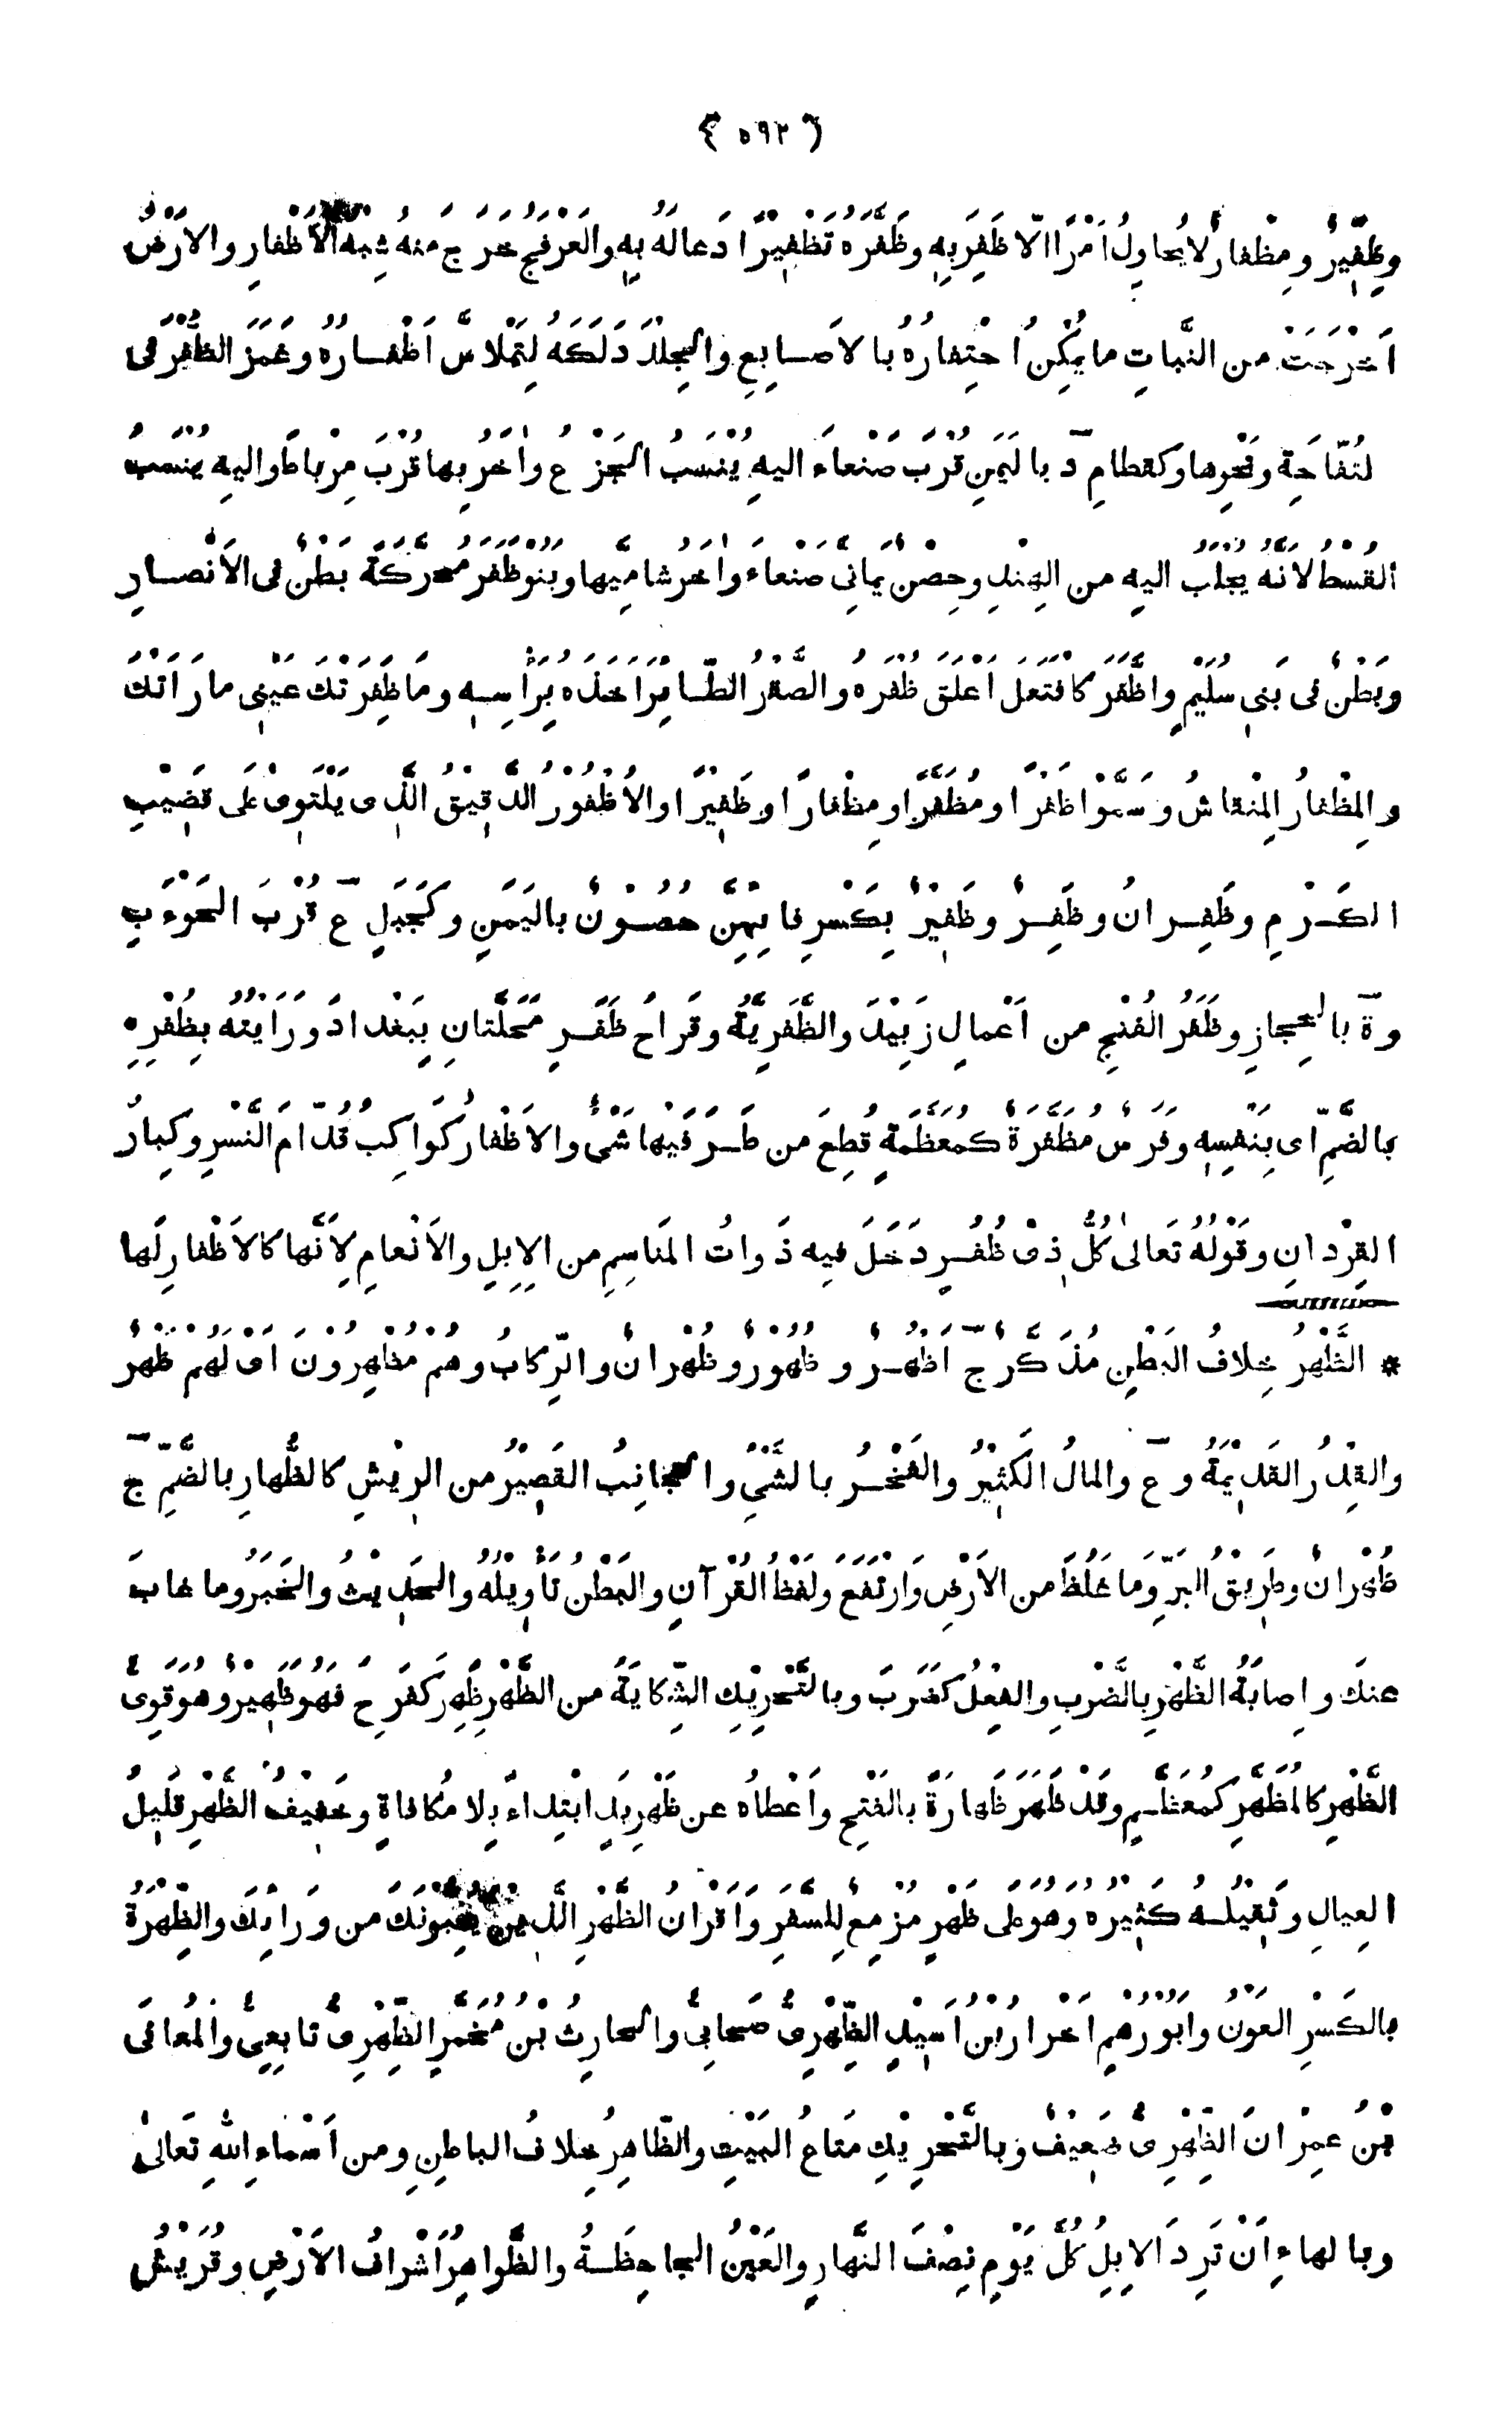 ﴿ ٥٩٢ ﴾
وظِفِّيْرٌ ومِظْفارٌ لا يُحاوِلُ اَمْرًا اِلّا ظَفِرَ بِهٖ وظَفَّرَهُ تَظْفِيْرًا دَعا لَهُ بِهٖ والعَرْفَجُ خَرَجَ منهُ شِبْهُ الاَظْفارِ والاَرْضُ
اَخْرَجَتْ من النَّباتِ ما يُمْكِنُ احْتِفارُهُ بالاَصابِعِ والجِلْدَ دَلَكَهُ لِتَمْلاسَّ اَظْفارُهُ وغَمَزَ الظُّفْرَ فى
تُفّاحَةٍ ونَحْوِها وكقَطامِ د باليَمَنِ قُرْبَ صَنْعاءَ اليهِ يُنْسَبُ الجَزْعُ واٰخَرُ بها قُرْبَ مِرْباطَ واليهِ يُنْسَبُ
القُسْطُ لاَنَّهُ يُجْلَبُ اليهِ من الهِنْدِ وحِصْنٌ يَمانِىَّ صَنْعاءَ واٰخَرُ شامِيَّها وبَنُو ظَفَرٍ مُحَرَّكَةً بَطْنٌ فى الاَنْصارِ
وبَطْنٌ فى بَنِى سُلَيْمٍ واظَّفَرَ كافْتَعَلَ اَعْلَقَ ظُفْرَهُ والصَّقْرُ الطّائِرَ اَخَذَهُ بِرَاْسِهٖ وما ظَفَرَتْكَ عَيْنِى ما رَاَتْكَ
والمِظْفارُ المِنْقاشُ وسَمَّوْا ظَفْرًا ومُظَفَّرًا ومِظْفارًا وظَفِيْرًا والاُظْفُوْرُ الدَّقِيْقُ الَّذِى يَلْتَوِىْ عَلى قَضِيْبِ
الكَرْمِ وظَفِرانُ وظَفِرٌ وظَفِيْرٌ بِكَسْرِ فائِهِنَّ حُصُوْنٌ باليَمَنِ وكَجَبَلٍ ع قُرْبَ الحَوْءَبِ
وة بالحِجازِ وظَفَرُ الفُنْجِ من اَعْمالِ زَبِيْدَ والظَّفَرِيَّةُ وقَراحُ ظَفَرٍ مَحَلَّتانِ بِبَغْدادَ ورَاَيْتُهُ بِظُفْرِهٖ
بالضَّمِّ اى بِنَفْسِهٖ وفَرَسٌ مُظَفَّرَةٌ كمُعَظَّمَةٍ قُطِعَ من طَرَفَيْها شَىْءٌ والاَظْفارُ كَواكِبُ قُدّامَ النَّسْرِ وكِبارُ
القِرْدانِ وقَوْلُهُ تَعالىٰ كُلَّ ذِىْ ظُفُرٍ دَخَلَ فيهِ ذَواتُ المَناسِمِ من الاِبِلِ والاَنْعامِ لِاَنَّها كالاَظْفارِ لَها
* الظَّهْرُ خِلافُ البَطْنِ مُذَكَّرٌ ج اَظْهُرٌ وظُهُوْرٌ وظُهْرانٌ والرِّكابُ وهم مُظْهِرُوْنَ اَىْ لَهُم ظَهْرٌ
والقِدْرُ القَدِيْمَةُ وع والمالُ الكَثِيْرُ والفَخْرُ بالشَّىْءِ والجانِبُ القَصِيْرُ من الرِيْشِ كالظُّهارِ بالضَّمِّ ج
ظُهْرانٌ وطَرِيْقُ البَرِّ وما غَلُظَ من الاَرْضِ وَارْتَفَعَ ولَفْظُ القُرْآنِ والبَطْنُ تَاْوِيْلُهُ والحَدِيْثُ والخَبَرُ وما غابَ
عنكَ واِصابَةُ الظَّهْرِ بالضَّرْبِ والفِعْلُ كضَرَبَ وبالتَّحْرِيْكِ الشِّكايَةُ من الظَّهْرِ ظَهِرَ كفَرِحَ فهُوَ ظَهِيْرٌ وهُوَ قَوِىُّ
الظَّهْرِ كالمُظَهَّرِ كمُعَظَّمٍ وقَدْ ظَهَرَ ظَهارَةً بالفَتْحِ واَعْطاهُ عن ظَهْرِ يَدٍ ابْتِداءً بِلا مُكافاةٍ وخَفِيْفُ الظَّهْرِ قَلِيْلُ
العِيالِ وثَقِيْلُهُ كَثِيْرُهُ وهُوَ عَلى ظَهْرٍ مُزْمِعٌ لِلسَّفَرِ واَقْرانُ الظَّهْرِ الَّذِيْنَ يُحِبُّوْنَكَ من وَرائِكَ والظِّهْرَةُ
بالكَسْرِ العَوْنُ واَبُو رُهْمٍ اَحْزابُ بْنُ اُسَيْدٍ الظِّهْرِىُّ صَحابِىٌّ والحارِثُ بْنُ مُحَمَّرٍ الظِّهْرِىُّ تابِعِىٌّ والمُعافَى
بْنُ عِمْرانَ الظِّهْرِىُّ ضَعِيْفٌ وبالتَّحْرِيْكِ مَتاعُ البَيْتِ والظّاهِرُ خِلافُ الباطِنِ ومن اَسْماءِ اللهِ تَعالىٰ
وبالهاءِ اَنْ تَرِدَ الاِبِلُ كُلَّ يَوْمٍ نِصْفَ النَّهارِ والعَيْنُ الجاحِظَةُ والظَّواهِرُ اَشْرافُ الاَرْضِ وقُرَيْشُ